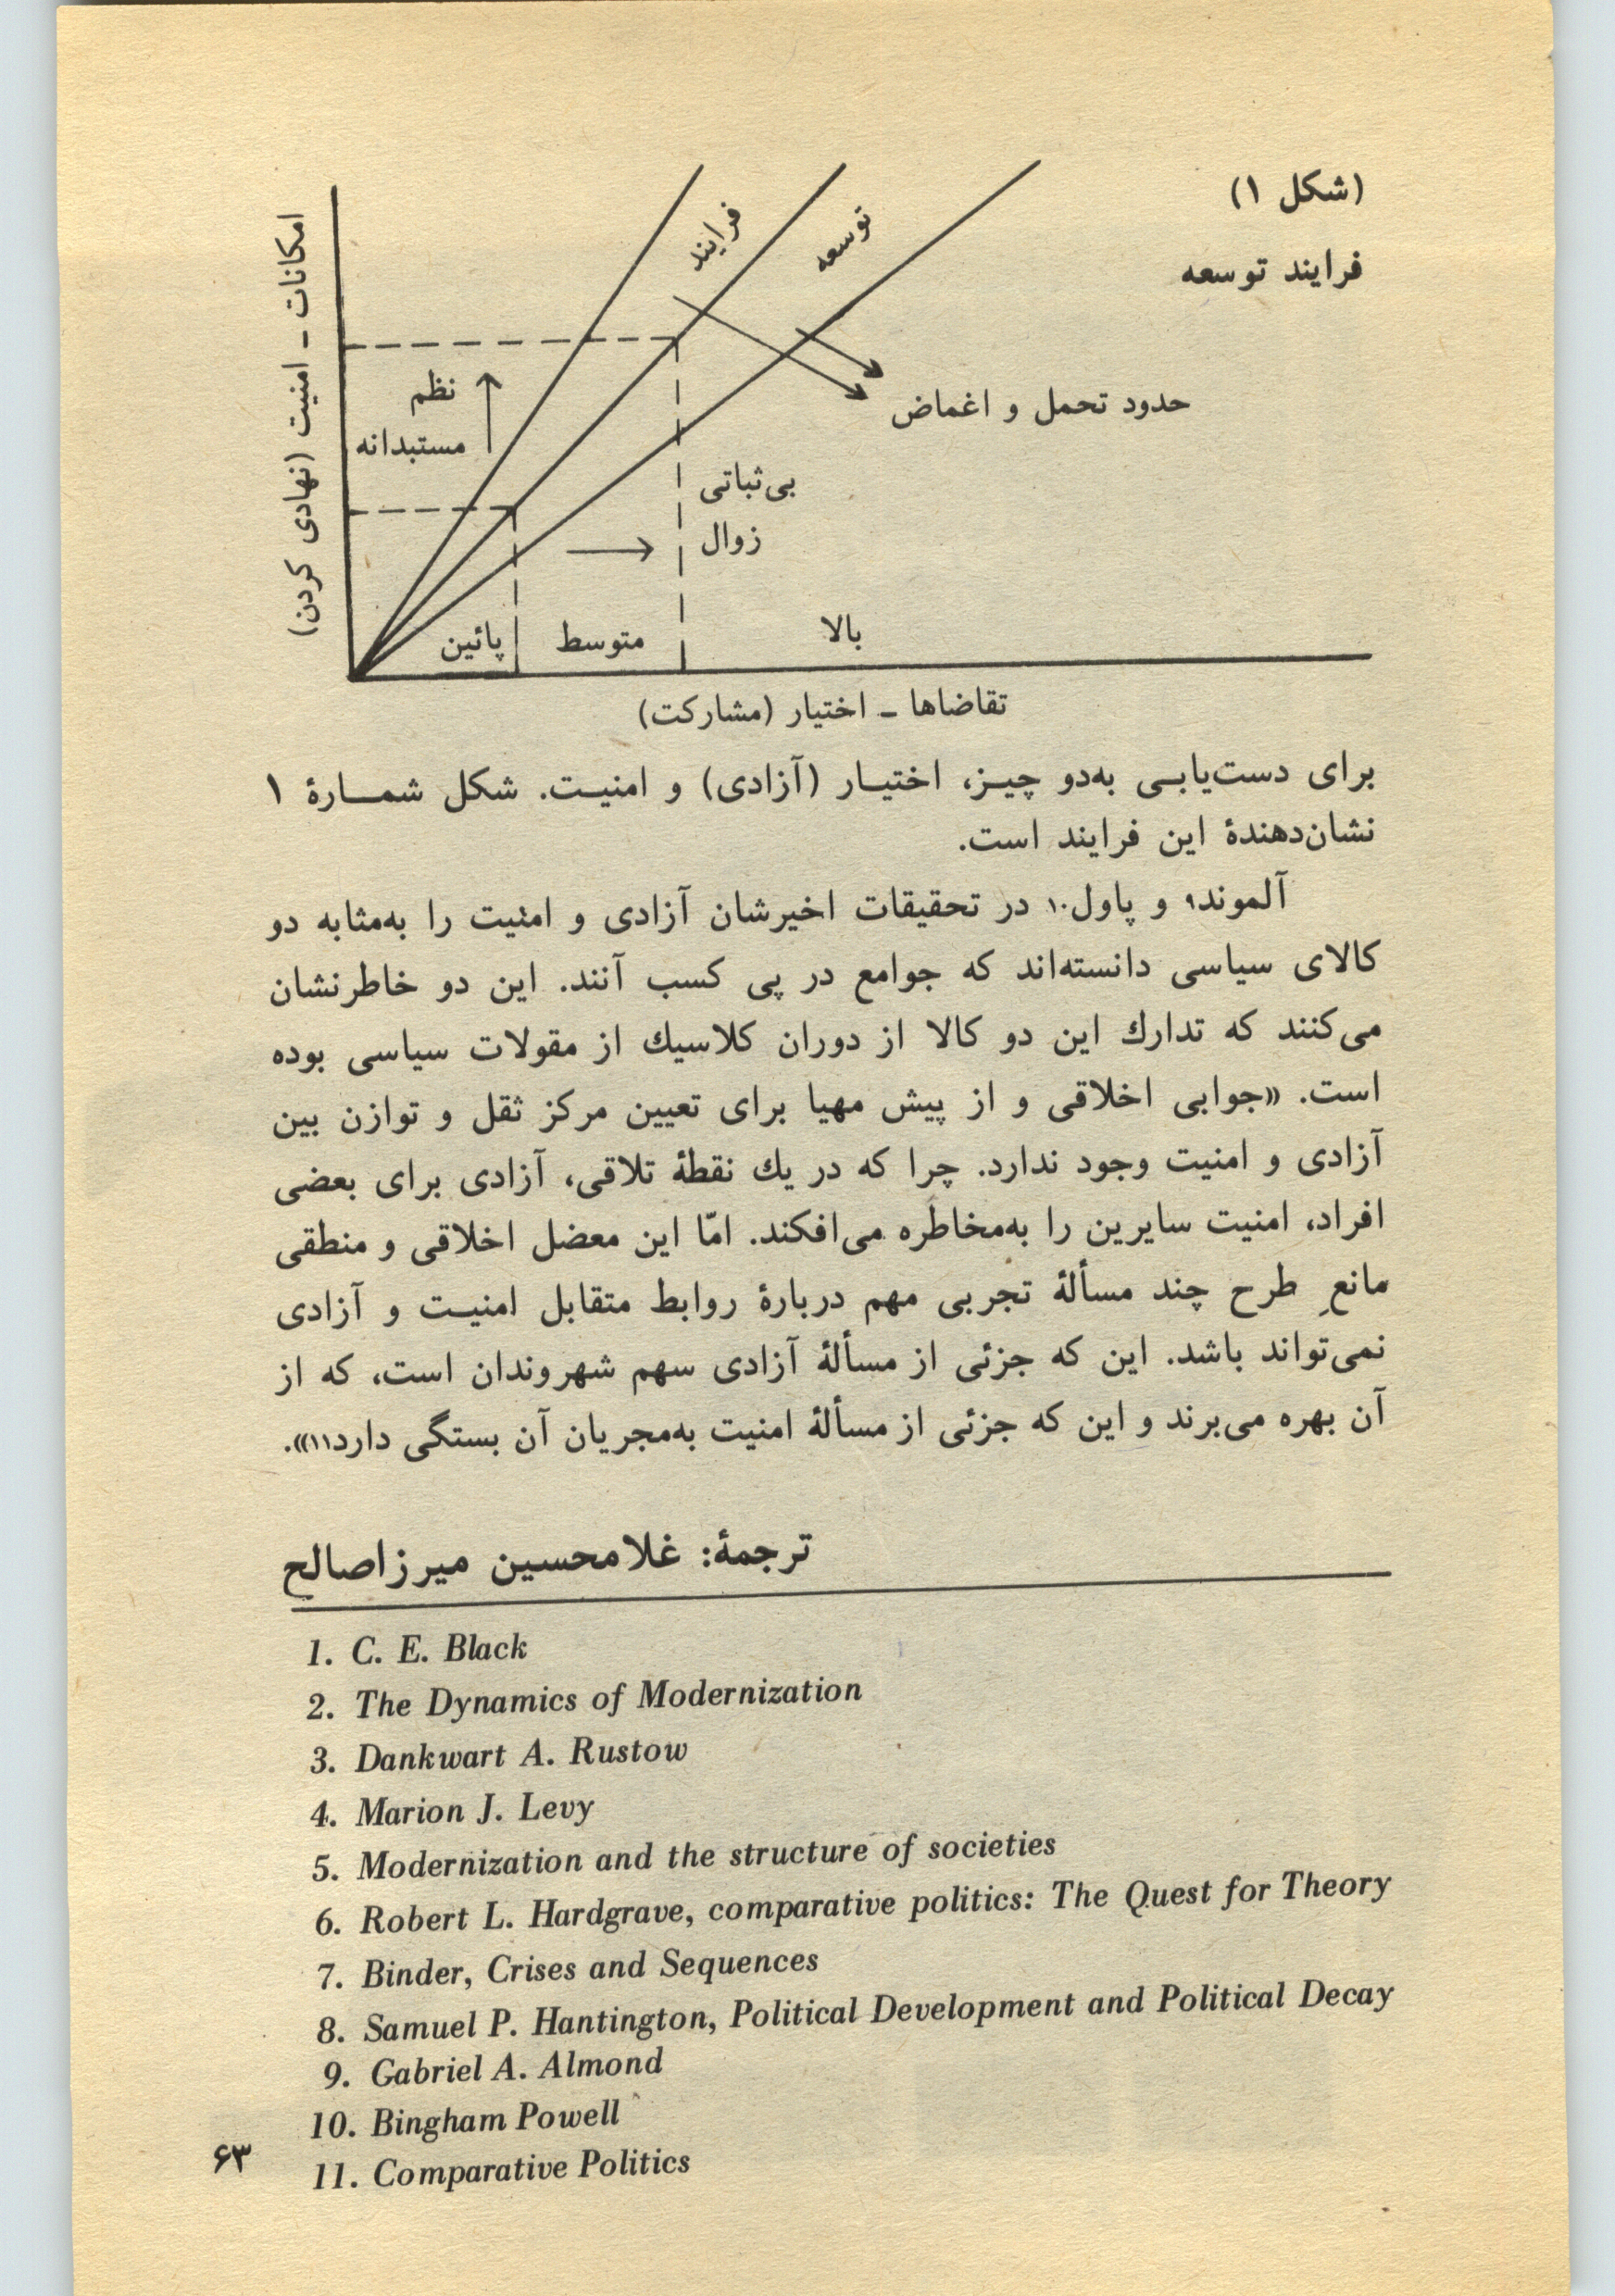 (شکل ۱)
فرایند توسعه
امکانات ـ امنیت (نهادی کردن)
فرایند
توسعه
نظم
مستبدانه
حدود تحمل و اغماض
بی‌ثباتی
زوال
پائین
متوسط
بالا
تقاضاها ـ اختیار (مشارکت)
برای دست‌یابـی به‌دو چیـز، اختیـار (آزادی) و امنیـت. شکل شمـارهٔ ۱
نشان‌دهندهٔ این فرایند است.
آلموند۹ و پاول۱۰ در تحقیقات اخیرشان آزادی و امنیت را به‌مثابه دو
کالای سیاسی دانسته‌اند که جوامع در پی کسب آنند. این دو خاطرنشان
می‌کنند که تدارك این دو کالا از دوران کلاسیك از مقولات سیاسی بوده
است. «جوابی اخلاقی و از پیش مهیا برای تعیین مرکز ثقل و توازن بین
آزادی و امنیت وجود ندارد. چرا که در یك نقطهٔ تلاقی، آزادی برای بعضی
افراد، امنیت سایرین را به‌مخاطره می‌افکند. امّا این معضل اخلاقی و منطقی
مانعِ طرح چند مسألهٔ تجربی مهم دربارهٔ روابط متقابل امنیـت و آزادی
نمی‌تواند باشد. این که جزئی از مسألهٔ آزادی سهم شهروندان است، که از
آن بهره می‌برند و این که جزئی از مسألهٔ امنیت به‌مجریان آن بستگی دارد۱۱».
ترجمهٔ: غلامحسین میرزاصالح
1. C. E. Black
2. The Dynamics of Modernization
3. Dankwart A. Rustow
4. Marion J. Levy
5. Modernization and the structure of societies
6. Robert L. Hardgrave, comparative politics: The Quest for Theory
7. Binder, Crises and Sequences
8. Samuel P. Hantington, Political Development and Political Decay
9. Gabriel A. Almond
10. Bingham Powell
11. Comparative Politics
۶۳